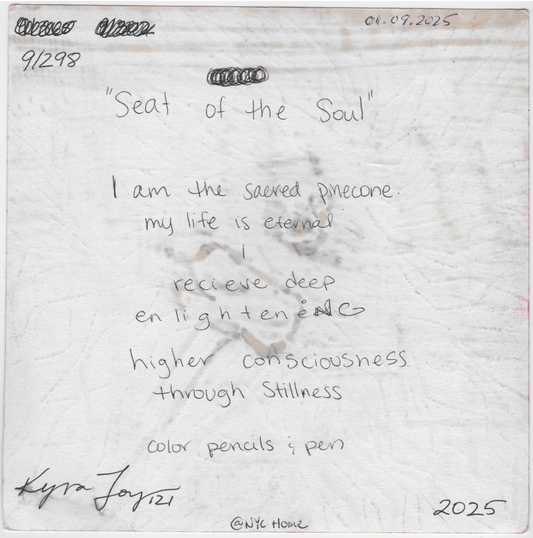 01.09.2025
9/298
"Seat of the Soul"
I am the sacred pinecone.
my life is eternal
I
recieve deep
enlightenING
higher consciousness
through Stillness
color pencils & pen
Kyra Joy 121
2025
@NYC Home